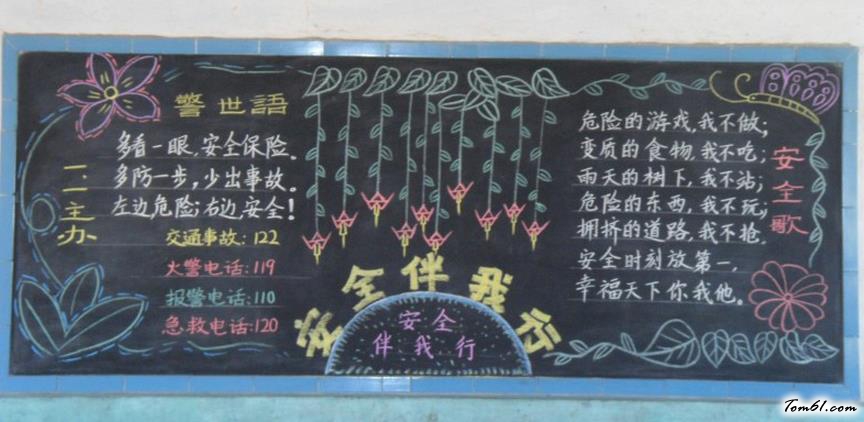 警世語
多看一眼,安全保险。
多防一步,少出事故。
左边,危险;右边,安全!
一一主办
交通事故:122
火警电话:119
报警电话:110
急救电话:120
安全伴我行
安全
伴我行
安全歌
危险的游戏,我不做;
变质的食物,我不吃;
雨天的树下,我不站;
危险的东西,我不玩;
拥挤的道路,我不抢.
安全时刻放第一,
幸福天下你我他。
Tom61.com